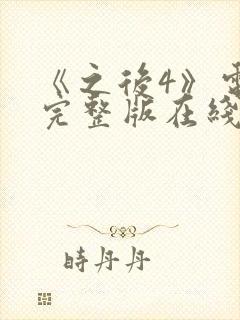 《之後4》電
完整版在綫
時丹丹